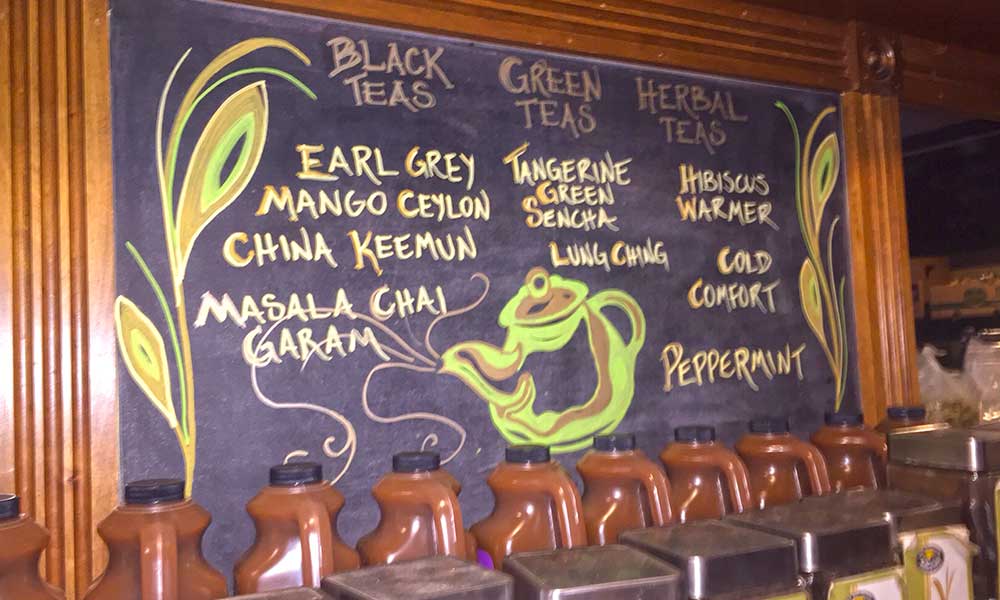 BLACK
TEAS
EARL GREY
MANGO CEYLON
CHINA KEEMUN
MASALA CHAI
GARAM
GREEN
TEAS
TANGERINE
GREEN
SENCHA
LUNG CHING
HERBAL
TEAS
HIBISCUS
WARMER
COLD
COMFORT
PEPPERMINT